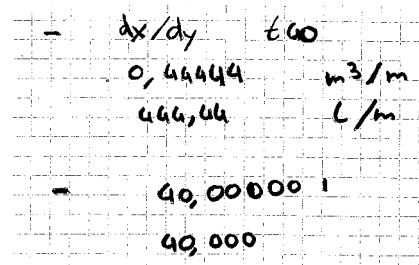 - dx/dy t40
0,44444 m³/m
444,44 L/m
- 40,00000 1
40,000